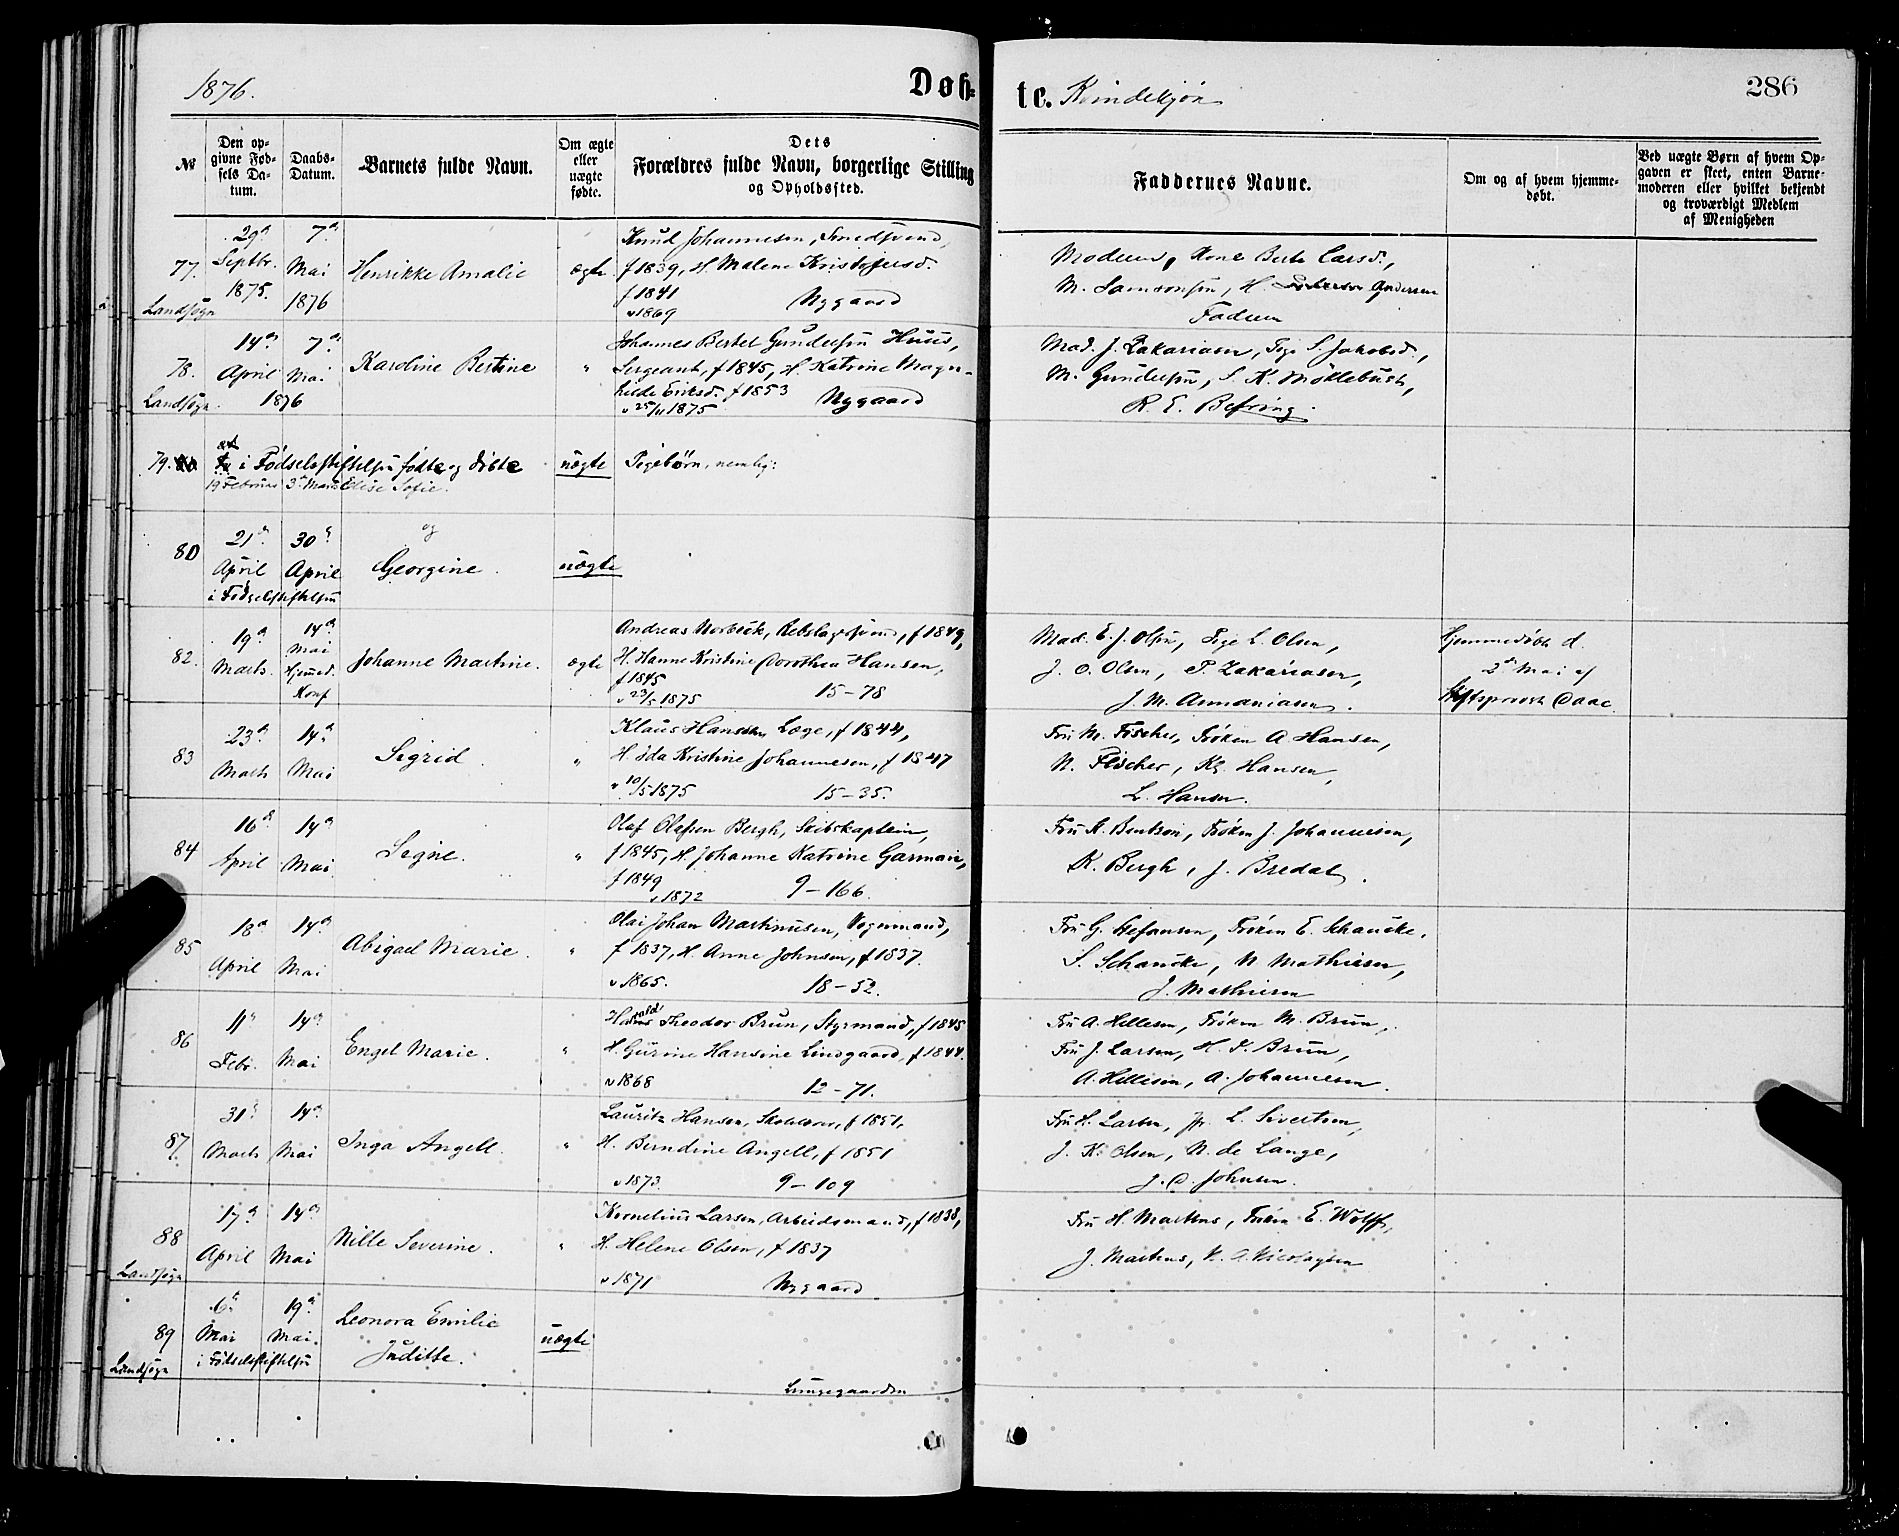 1876.
Døb-
te. Kvindekjøn
286
№
Den opgivne Fødsels Datum.
Daabs-Datum.
Barnets fulde Navn.
Om ægte eller uægte fødte.
Dets Forældres fulde Navn, borgerlige Stilling og Opholdssted.
Faddernes Navne.
Om og af hvem hjemmedøbt.
Ved uægte Børn af hvem Opgaven er skeet, enten Barnemoderen eller hvilket bekjendt og troværdigt Medlem af Menigheden
77.
Landsogn
29de Septbr. 1875.
7de Mai 1876
Henrikke Amalie
ægte
Knud Johannesen, Smedsvend,
f 1839, H. Malene Kristofersd.
f 1841
v 1869 Nygaard
Moderen, Kone Berte Larsd.,
M. Samsonsen, H. Andersen
Faderen
78.
Landsogn.
14de April
7de Mai
1876
Karoline Bertine
"
Johannes Bertel Gundersen Huus,
Sergeant, f 1845, H. Katrine Magn-
hilde Eriksd. f 1853
v 25/11 1875 Nygaard
Mad. J. Zakariasen, Pige S. Jakobsd.,
M. Gundersen, S. K. Möklebust,
R. E. Befring.
79.
i Fødselsstiftelsen fødte og døbte
19 Februar 3de Marts Elise Sofie.
uægte
Pigebørn, nemlig:
80
21de April
30te April
i Fødselsstiftelsen
og
Georgine.
uægte
82.
19de Marts.
14de Mai
Hjemmed. Konf
Johanne Martine.
ægte
Andreas Norbeck, Rebslagersvend, f 1849,
H. Hanne Kristine Dorothea Hansen,
f 1845
v 23/5 1875 15-78
Mad. E. J. Olsen, Pige L. Olsen,
J. O. Olsen, P. Zakariasen,
J. M. Annaniasen.
Hjemmedøbt d.
2den Mai af
Stiftsprovst Daae.
83
23de Marts
14de Mai
Sigrid.
"
Klaus Hanssen, Læge, f 1844,
H. Ida Kristine Johannesen, f 1847
v 10/5 1875 15-35.
Fru M. Fischer, Frøken A. Hansen,
N. Fischer, Kl. Hansen,
L. Hansen.
84
16de April
14de Mai
Signe.
"
Olaf Olafsen Bergh, Skibskaptein,
f 1845, H. Johanne Katrine Garmann,
f 1849
v 1872 9-166.
Fru A. Bentsen, Frøken J. Johannesen,
K. Bergh, J. Bredal.
85
18de April
14de Mai
Abigael Marie.
"
Olai Johan Martinusen, Vognmand,
f 1837, H. Anne Johnsen, f 1837.
v 1865. 18-52.
Fru G. Stefansen, Frøken E. Schancke,
S. Schancke, N. Mathiesen,
J. Mathiesen
86
11te Febr.
14de Mai
Engel Marie.
"
Harald Theodor Brun, Styrmand, f 1845
H. Gurine Hansine Lindgaard, f 1844.
v 1868 12-71.
Fru A. Hillesen, Frøken M. Brun,
Fru J. Larsen, H. T. Brun,
A. Hillesen, A. Johannesen.
87.
31te Marts
14de Mai
Inga Angell.
"
Lauritz Hansen, f 1851,
H. Berndine Angell, f 1851
v 1873. 9-109
Fru H. Larsen, L. Sivertsen,
J. K. Olsen, N. de Lange,
J. O. Johnsen.
88
Landsogn
17de April
14de Mai
Nille Severine.
"
Kornelius Larsen, Arbeidsmand, f 1838,
H. Helene Olsen, f 1837
v 1871 Nygaard
Fru H. Martens, Frøken E. Wolff,
J. Martens, N. A. Nicolaysen
89
Landsogn
6te Mai
19de Mai.
i Fødselsstiftelsen
Leonora Emilie
Juditte.
uægte
Lungegaarden